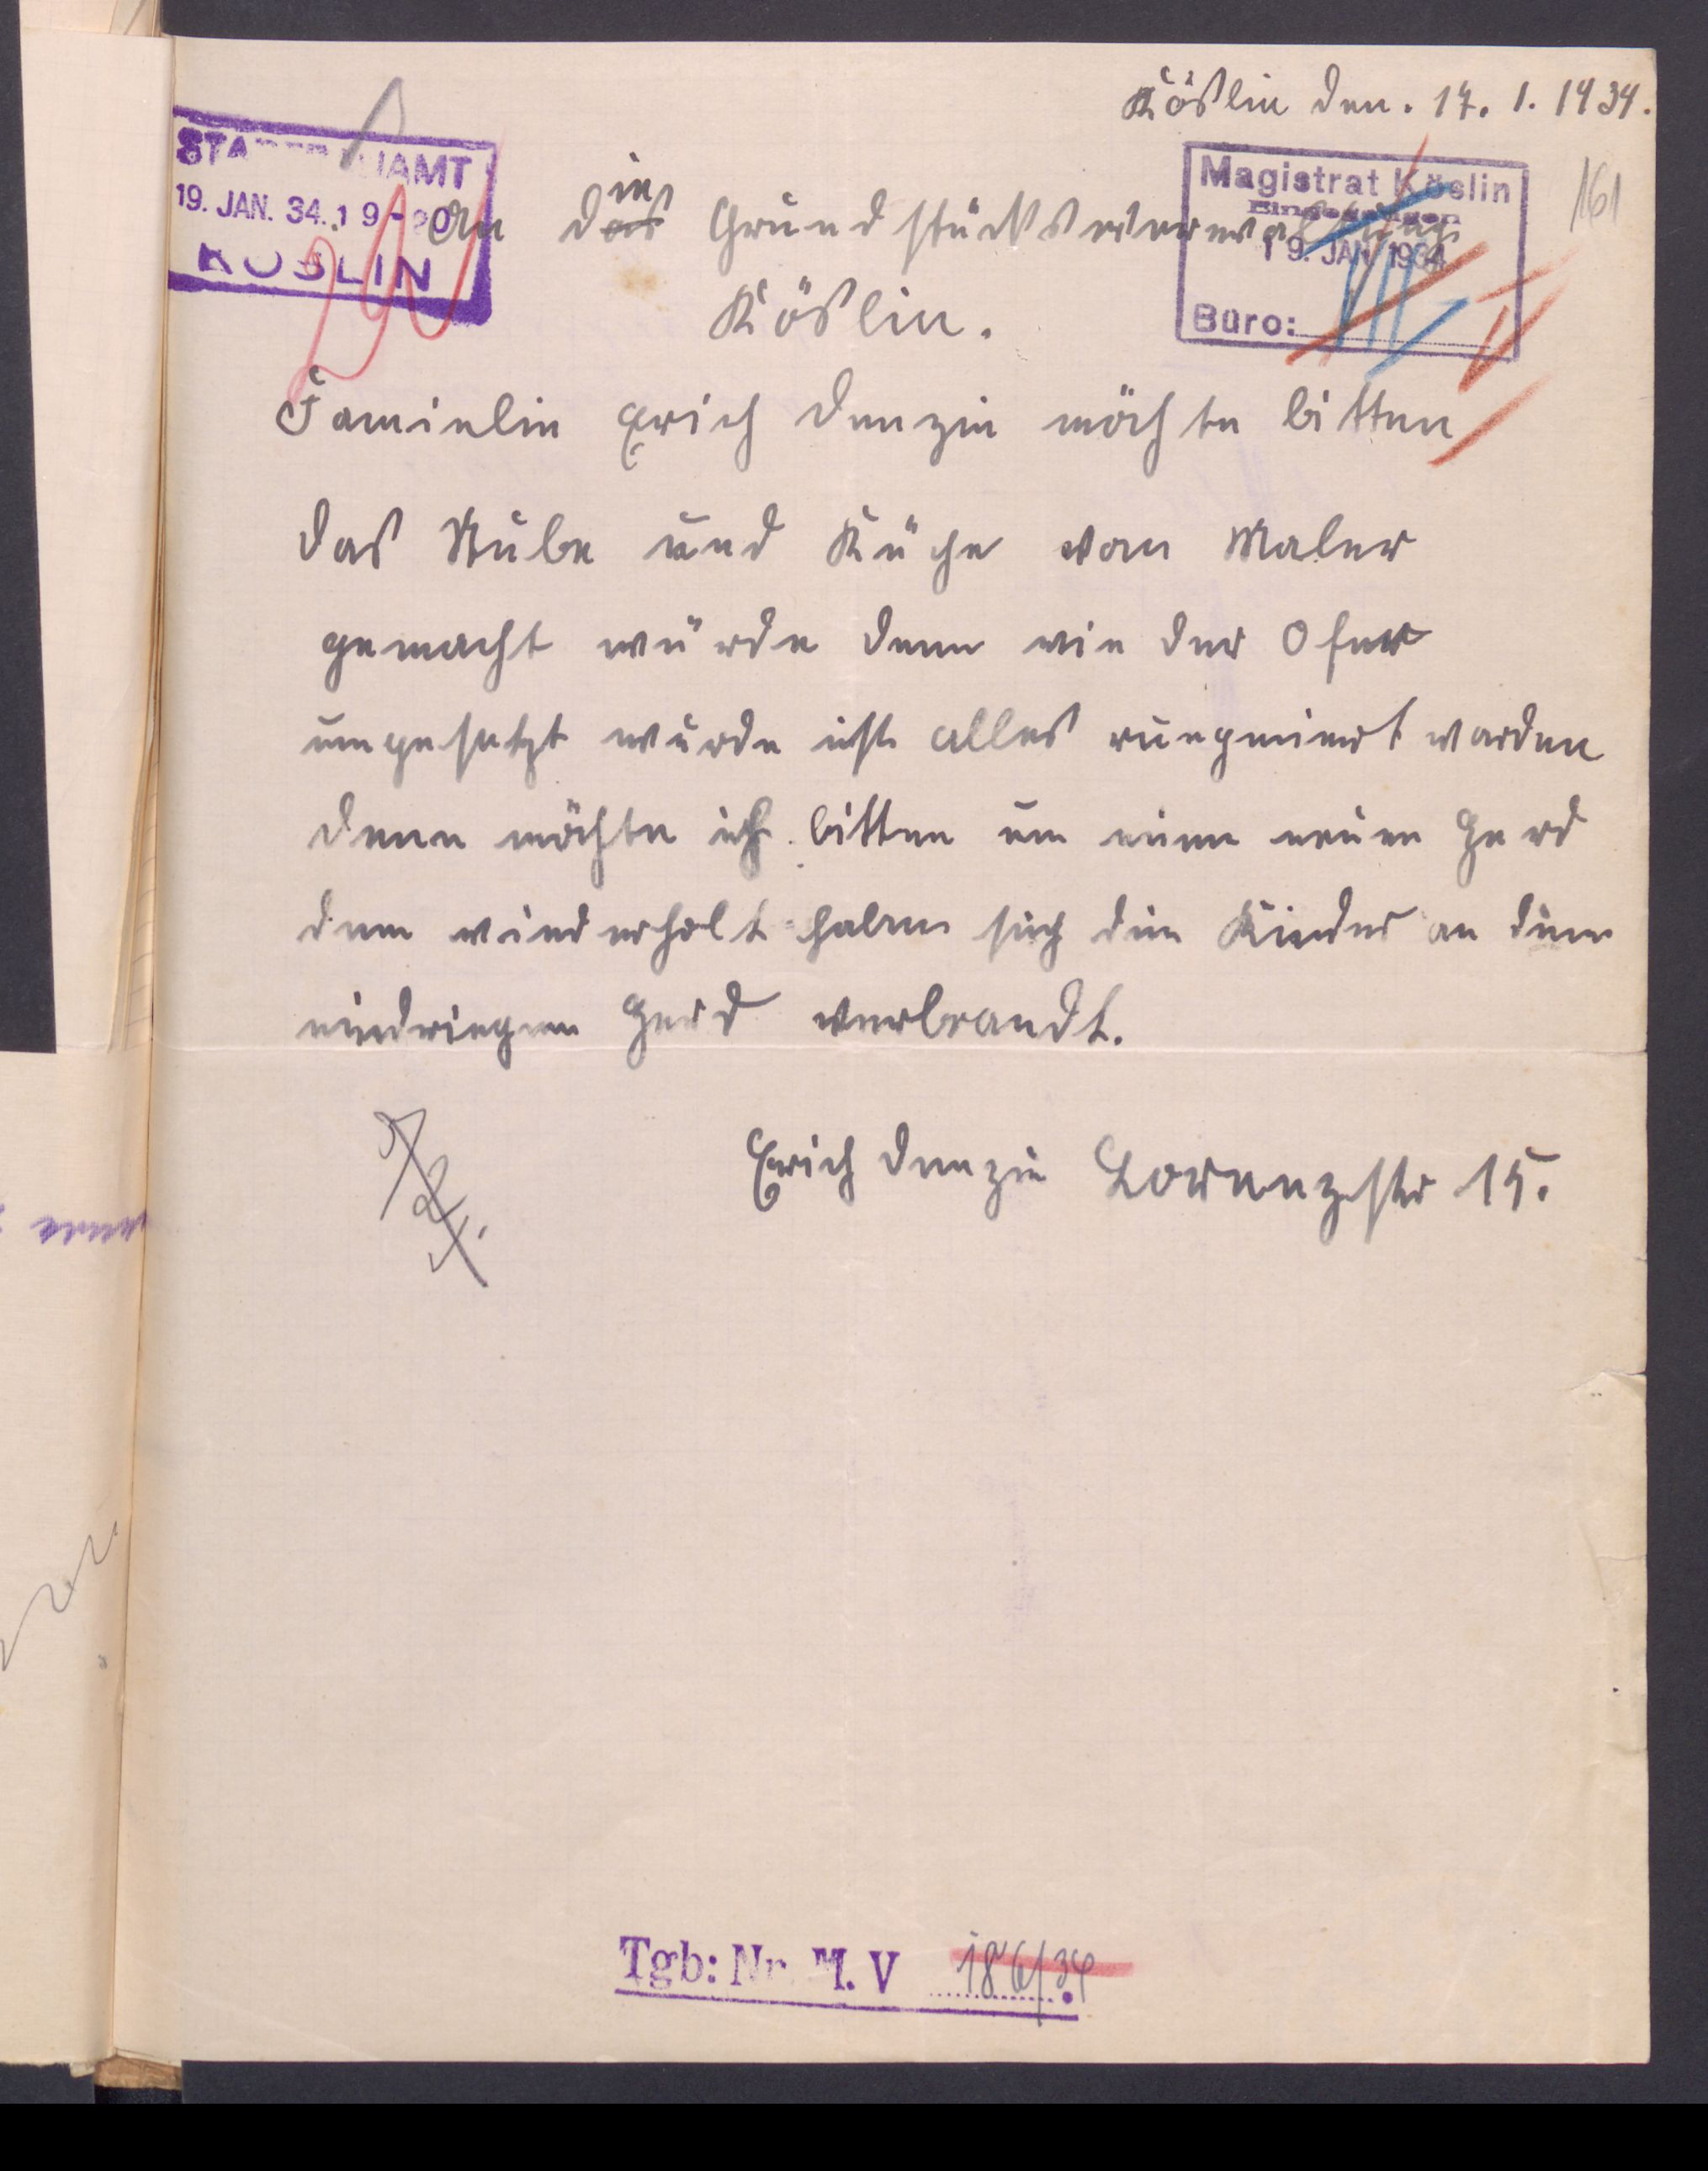 Kößlin den. 17. 1. 1934.
161
STADTBAUAMT
19. JAN. 34. 19-20
KÖSLIN
Magistrat Köslin
Eingegangen
19. JAN. 1934
Büro:
An die Grundstücksverwaltung
Kößlin.
Famielie Erich Denzin möchte bitten
das Stube und Küche vom Maler
gemacht würde denn wie der Ofen
umgesetzt wurde ist alles rungeniert worden
denn möchte ich bitten um einen neuen Herd
denn wiederholt haben sich die Kinder an dien
niedriegen Herd verbrandt.
Erich Denzin Lorenzstr 15.
Tgb: Nr. M. V 186/34